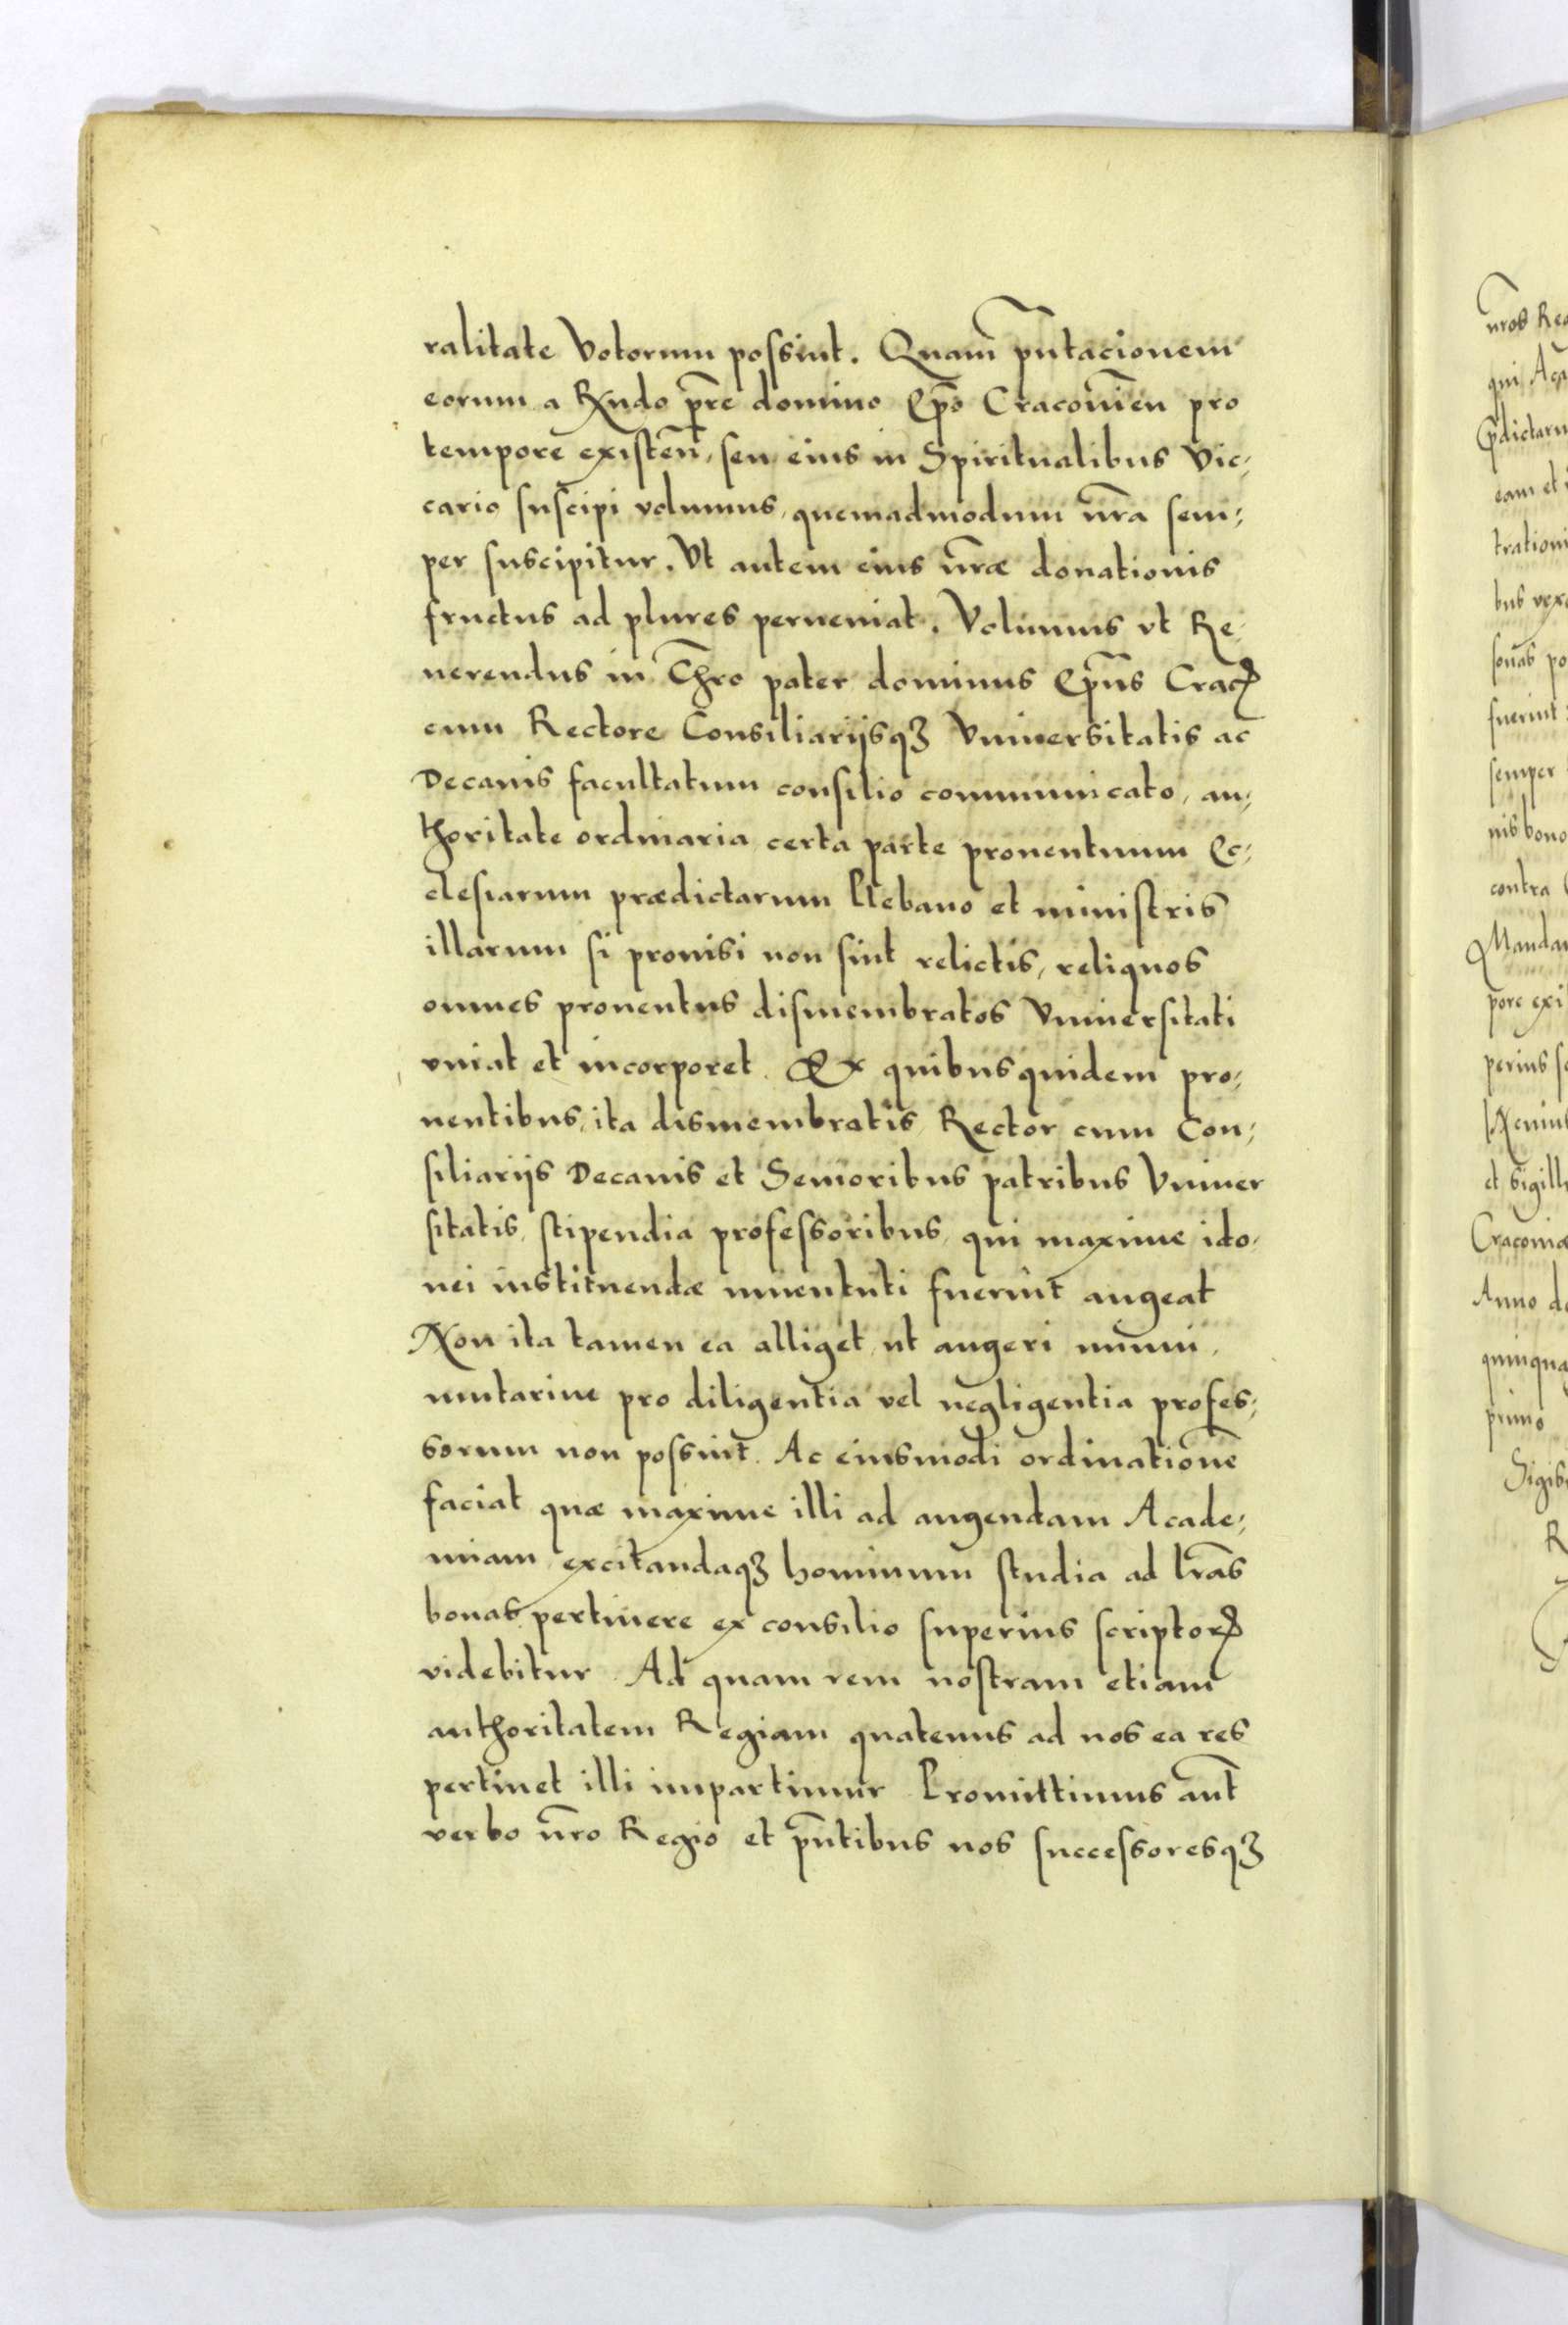 ralitate Votorum possint. Quam̃ pñtacionem
eorum a Rx̃ndo pr̃e domino Ep̃o Cracovieñ pro
tempore existeñ, seu eius in Spiritualibus Vic⸗
cario suscipi volumus, quemadmodum nr̃a sem⸗
per suscipitur. Vt autem eius nr̃æ donationis
fructus ad plures perueniat. Volumus vt Re⸗
uerendus in Chr̃o pater dominus Ep̃us Cracꝭ
cum Rectore Consiliarijsqꝫ Vniuersitatis ac
Decanis facultatum consilio communicato, au⸗
thoritate ordinaria certa parte prouentuum Ec⸗
clesiarum prædictarum Plebano et ministris
illarum si prouisi non sint relictis, reliquos
omnes prouentus dismembratos Vniuersitati
vniat et incorporet. Ex quibus quidem pro⸗
uentibus, ita dismembratis Rector cum Con⸗
siliarijs Decanis et Senioribus patribus Vniuer
sitatis, stipendia professoribus, qui maxime ido⸗
nei instituendæ iuuentuti fuerint augeat
Non ita tamen ea alliget, ut augeri minui,
mutariue pro diligentia vel negligentia profes⸗
sorum non possint. Ac eiusmodi ordinationẽ
faciat quæ maxime illi ad augendam Acade⸗
miam, excitandaqꝫ hominum studia ad lr̃as
bonas pertinere ex consilio superius scriptorꝭ
videbitur. Ad quam rem nostram etiam
authoritatem Regiam quatenus ad nos ea res
pertinet illi impartimur Promittimus aut̃
verbo nr̃o Regio et pñtibus nos successoresqꝫ
nr̃os
qui
p̃dictaru
eam et
tration
bus
po
fuerint
semper
nis bono
contra
Manda
pore exi
perius
et sigill
Cracouiæ
Anno
quinqua
primo